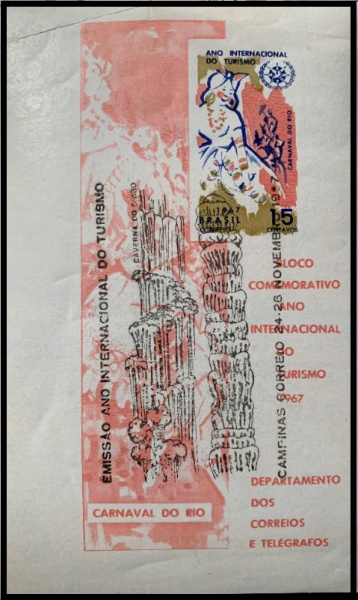 ANO INTERNACIONAL
DO TURISMO
CARNAVAL DO RIO
1967
BRASIL
CORREIO
15
CENTAVOS
EMISSÃO ANO INTERNACIONAL DO TURISMO
CAVERNA DO
CAMPINAS CORREIO 24-26 NOVEMBRO 1967
BLOCO
COMEMORATIVO
ANO
INTERNACIONAL
DO
TURISMO
1967
DEPARTAMENTO
DOS
CORREIOS
E TELÉGRAFOS
CARNAVAL DO RIO